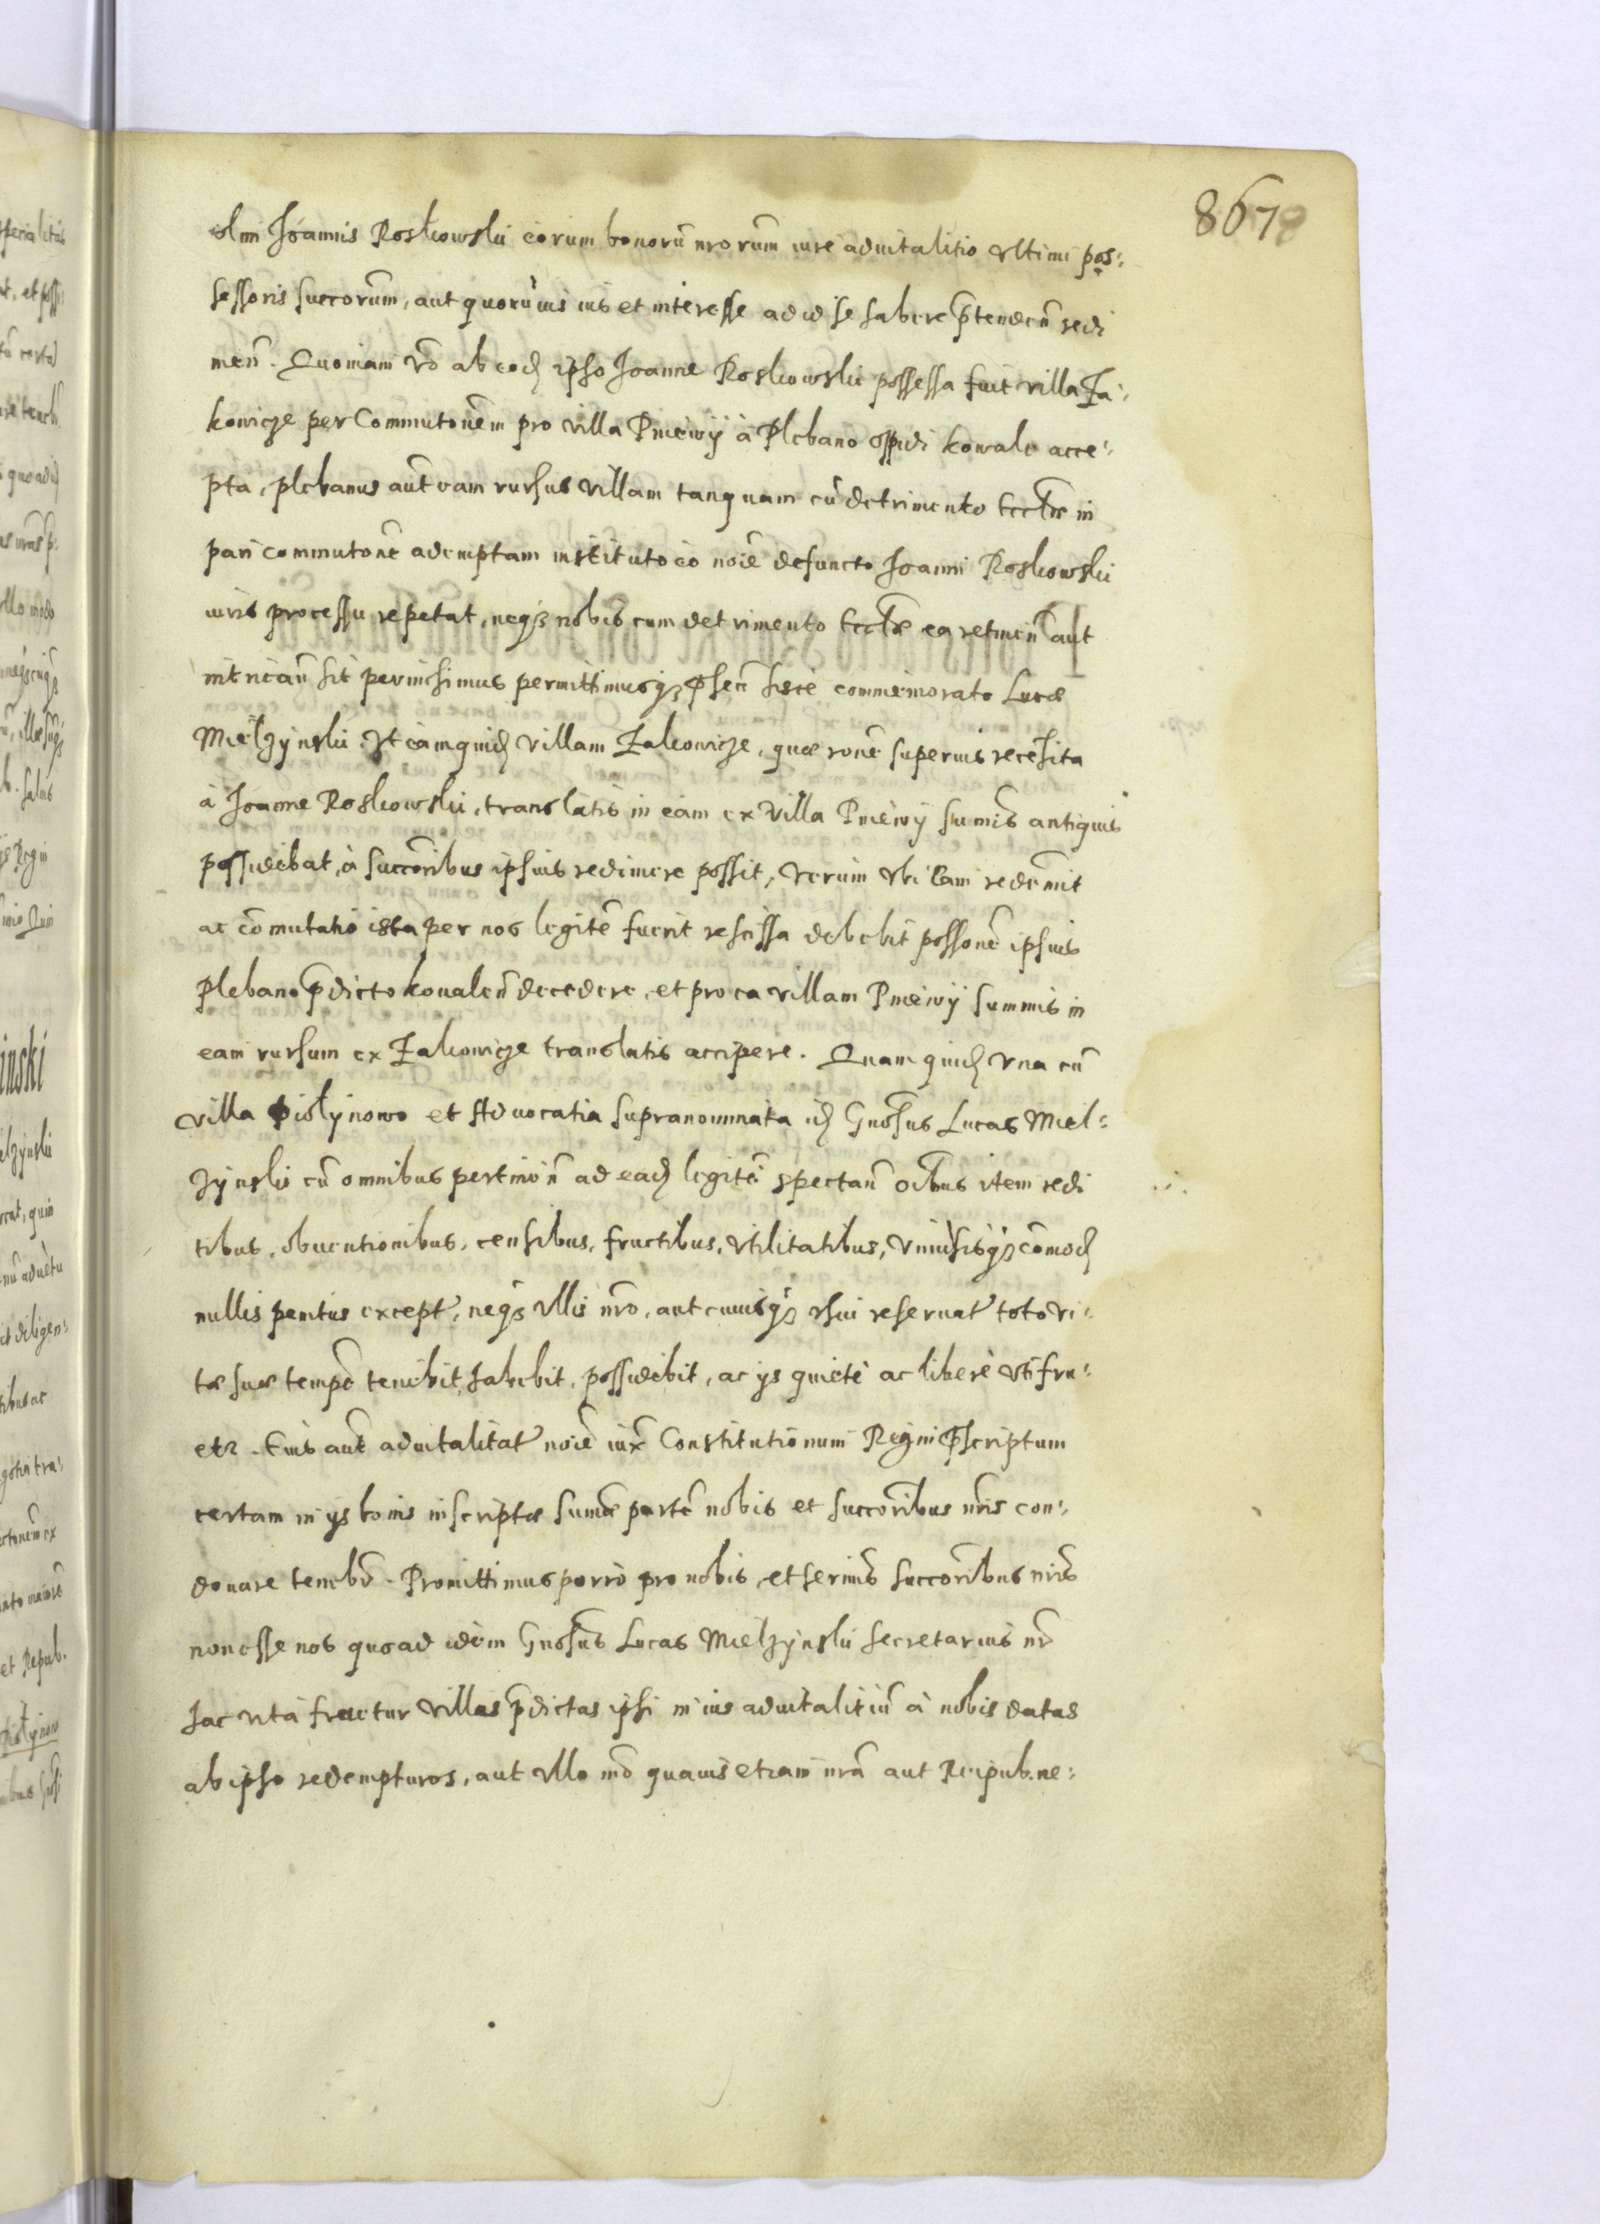 8678
olim Joannis Roskowski eorum bonorū nrorum iure aduitalitio vltimi pos:
sessoris succorum, aut quorūuis ius et interesse ad id se habere p̄tendeñ redi
meñ. Quoniam vō ab eod ipso Joanne Roskowski possessa fuit villa Za:
kowicze per Commutonem pro villa Pniewij à Plebano oppidi Kowale acce:
pta, plebanus aut eam rursus villam tanquam cū detrimento Eccłae in
pari commutone ademptam instituto eo noie defuncto Joanni Roskowski
iuris processu repetat, neq3 nobis cum detrimento Eccłae ea retineñ aut
intricañ sit permisimus permittimusq3 p̄señ hisce commemorato Lucae
Mielzynski vt eam quid villam Zakowicze, quae rone superius recensita
à Joanne Roskowski, translatis in eam ex villa Pniewij summis antiquis
possidebat, à succoribus ipsius redimere possit, verum vbi eam redemit
ac comutatio ista per nos legite fuerit rescissa debebit possone ipsius
Plebano p̄dicto Kowaleñ decedere, et pro ea villam Pniewij summis in
eam rursum ex Zakowicze translatis accipere. Quam quid vna cū
villa Dislynowo et Aduocatia supranominata id Gnosus Lucas Miel:
zynski cū omnibus pertineñ ad ead legite spectañ oibus item redi
tibus, obuentionibus, censibus, fructibus, vtilitatibus, vniuersisq3 comod
nullis penitus except, neq3 vllis nro, aut cuiusq3 vsui reseruat toto vi:
tae suae tempe tenebit, habebit, possidebit, ac ijs quietè ac liberè vti fru:
etr. Eius aut aduitalitat noie iux Constitutionum Regni p̄scriptum
certam in ijs bonis inscriptae sumae parte nobis et succoribus nris con:
donare tenebr. Promittimus porrò pro nobis, et serenis succoribus nris
non esse nos quoad idem Gnosus Lucas Mielzynski secretarius nr
hac vita fruetur villas p̄dictas ipsi in ius aduitalitiū à nobis datas
ab ipso redempturos, aut vllo mō quauis etiam nra aut Reipub. ne: